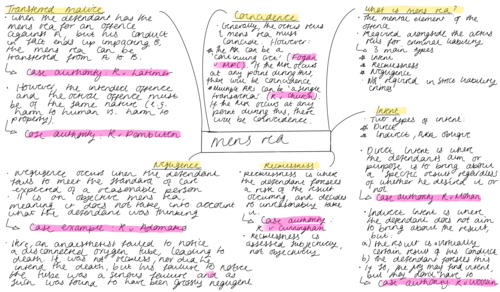 Transferred malice
• When the defendant has the
mens rea for an offence
against A, but his conduct
in fact ends up impacting B,
the mens rea can be
transferred from A to B.
↳ Case authority: R v Latimer
• However, the intended offence
and the actual offence must
be of the same nature (e.g.
harm to human vs. harm to
property)
↳ Case authority: R v Pembliton
Coincidence
• Generally, the actus reus
& mens rea must
coincide. However:
AR can be a
'continuing act' (Fagan
v MPC). If the MR occurs
at any point during this,
there will be coincidence
AR can be a 'single
transaction' (R v Church).
If the MR occurs at any
point during this, there
will be coincidence.
What is mens rea?
• The mental element of the
offence
• Required alongside the actus
reus for criminal liability
• 3 main types
Intent
Recklessness
Negligence
• Not required in strict liability
crimes!
mens rea
Intent
• Two types of intent:
Direct
Indirect, AKA oblique
• Direct intent is where
the defendant's aim or
purpose is to bring about
a specific result regardless
of whether he desired it or
not
↳ Case authority: R v Mohan
• Indirect intent is where
the defendant does not aim
to bring about the result,
but:
a) the result is virtually
certain result of his conduct
b) the defendant foresees this
• If so, the jury may find intent,
but they don't have to
↳ Case authority: R v Woollin
Negligence
• Negligence occurs when the defendant
fails to meet the standard of care
expected of a reasonable person
• It is an objective mens rea,
meaning it does not take into account
what the defendant was thinking
↳ Case example: R v Adomako
Here, an anaesthetist failed to notice
a disconnected oxygen tube, leading to
death. It was not reckless nor did he
intend the death, but his failure to notice
the tube was a serious failure and as
such was found to have been grossly negligent
Recklessness
• Recklessness is where
the defendant foresees
a risk of the result
occurring, and decides
to unreasonably take
it.
↳ Case authority:
R v Cunningham
• Recklessness is
assessed subjectively,
not objectively.